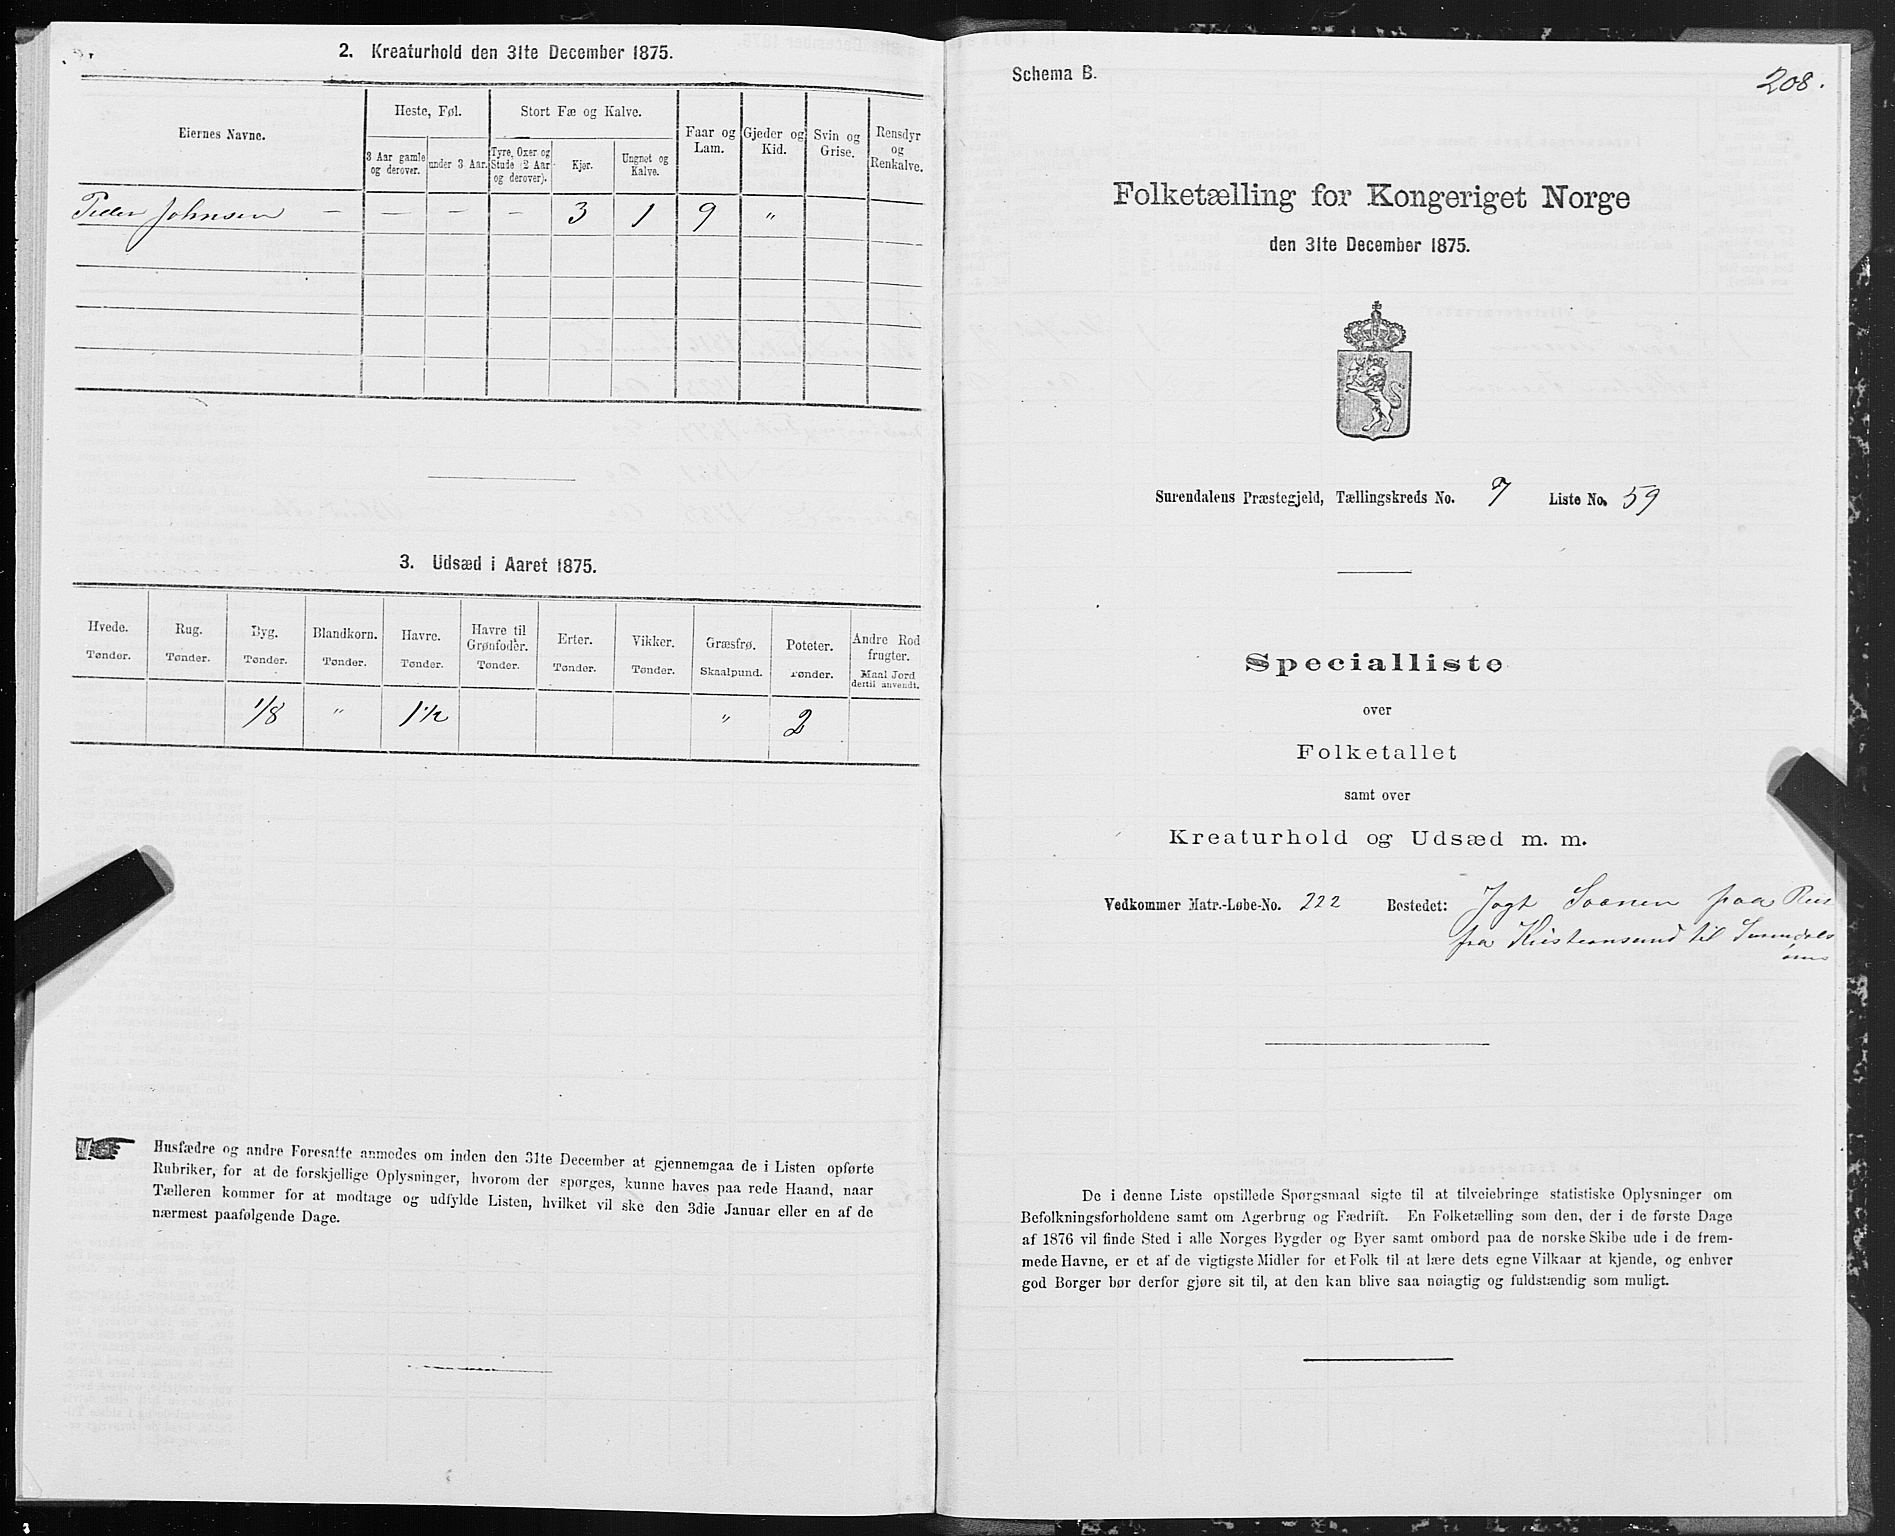 2. Kreaturhold den 31te December 1875.
Eiernes Navne.
Heste, Føl.
Stort Fæ og Kalve.
Faar og Lam.
Gjeder og Kid.
Svin og Grise.
Rensdyr og Renkalve.
3 Aar gamle og derover.
under 3 Aar.
Tyre, Oxer og Stude (2 Aar og derover).
Kjør.
Ungnøt og Kalve.
Peder Johnsen — — — — 3 1 9 "
3. Udsæd i Aaret 1875.
Hvede. Rug. Byg. Blandkorn. Havre. Havre til Grønfoder. Erter. Vikker. Græsfrø. Poteter. Andre Rodfrugter.
Tønder. Tønder. Tønder. Tønder. Tønder. Tønder. Tønder. Tønder. Skaalpund. Tønder. Maal Jord dertil anvendt.
1/8 " 1 1/2 " 2
Husfædre og andre Foresatte anmodes om inden den 31te December at gjennemgaa de i Listen opførte
Rubriker, for at de forskjellige Oplysninger, hvorom der spørges, kunne haves paa rede Haand, naar
Tælleren kommer for at modtage og udfylde Listen, hvilket vil ske den 3die Januar eller en af de
nærmest paafølgende Dage.
Schema B.
208.
Folketælling for Kongeriget Norge
den 31te December 1875.
Surendalens Præstegjeld, Tællingskreds No. 7 Liste No. 59
Specialliste
over
Folketallet
samt over
Kreaturhold og Udsæd m. m.
Vedkommer Matr.-Løbe-No. 222 Bostedet: Jagt paa Reis
fra Kristiansund til Surendals
øren
De i denne Liste opstillede Spørgsmaal sigte til at tilveiebringe statistiske Oplysninger om
Befolkningsforholdene samt om Agerbrug og Fædrift. En Folketælling som den, der i de første Dage
af 1876 vil finde Sted i alle Norges Bygder og Byer samt ombord paa de norske Skibe ude i de frem-
mede Havne, er et af de vigtigste Midler for et Folk til at lære dets egne Vilkaar at kjende, og enhver
god Borger bør derfor gjøre sit til, at den kan blive saa nøiagtig og fuldstændig som muligt.